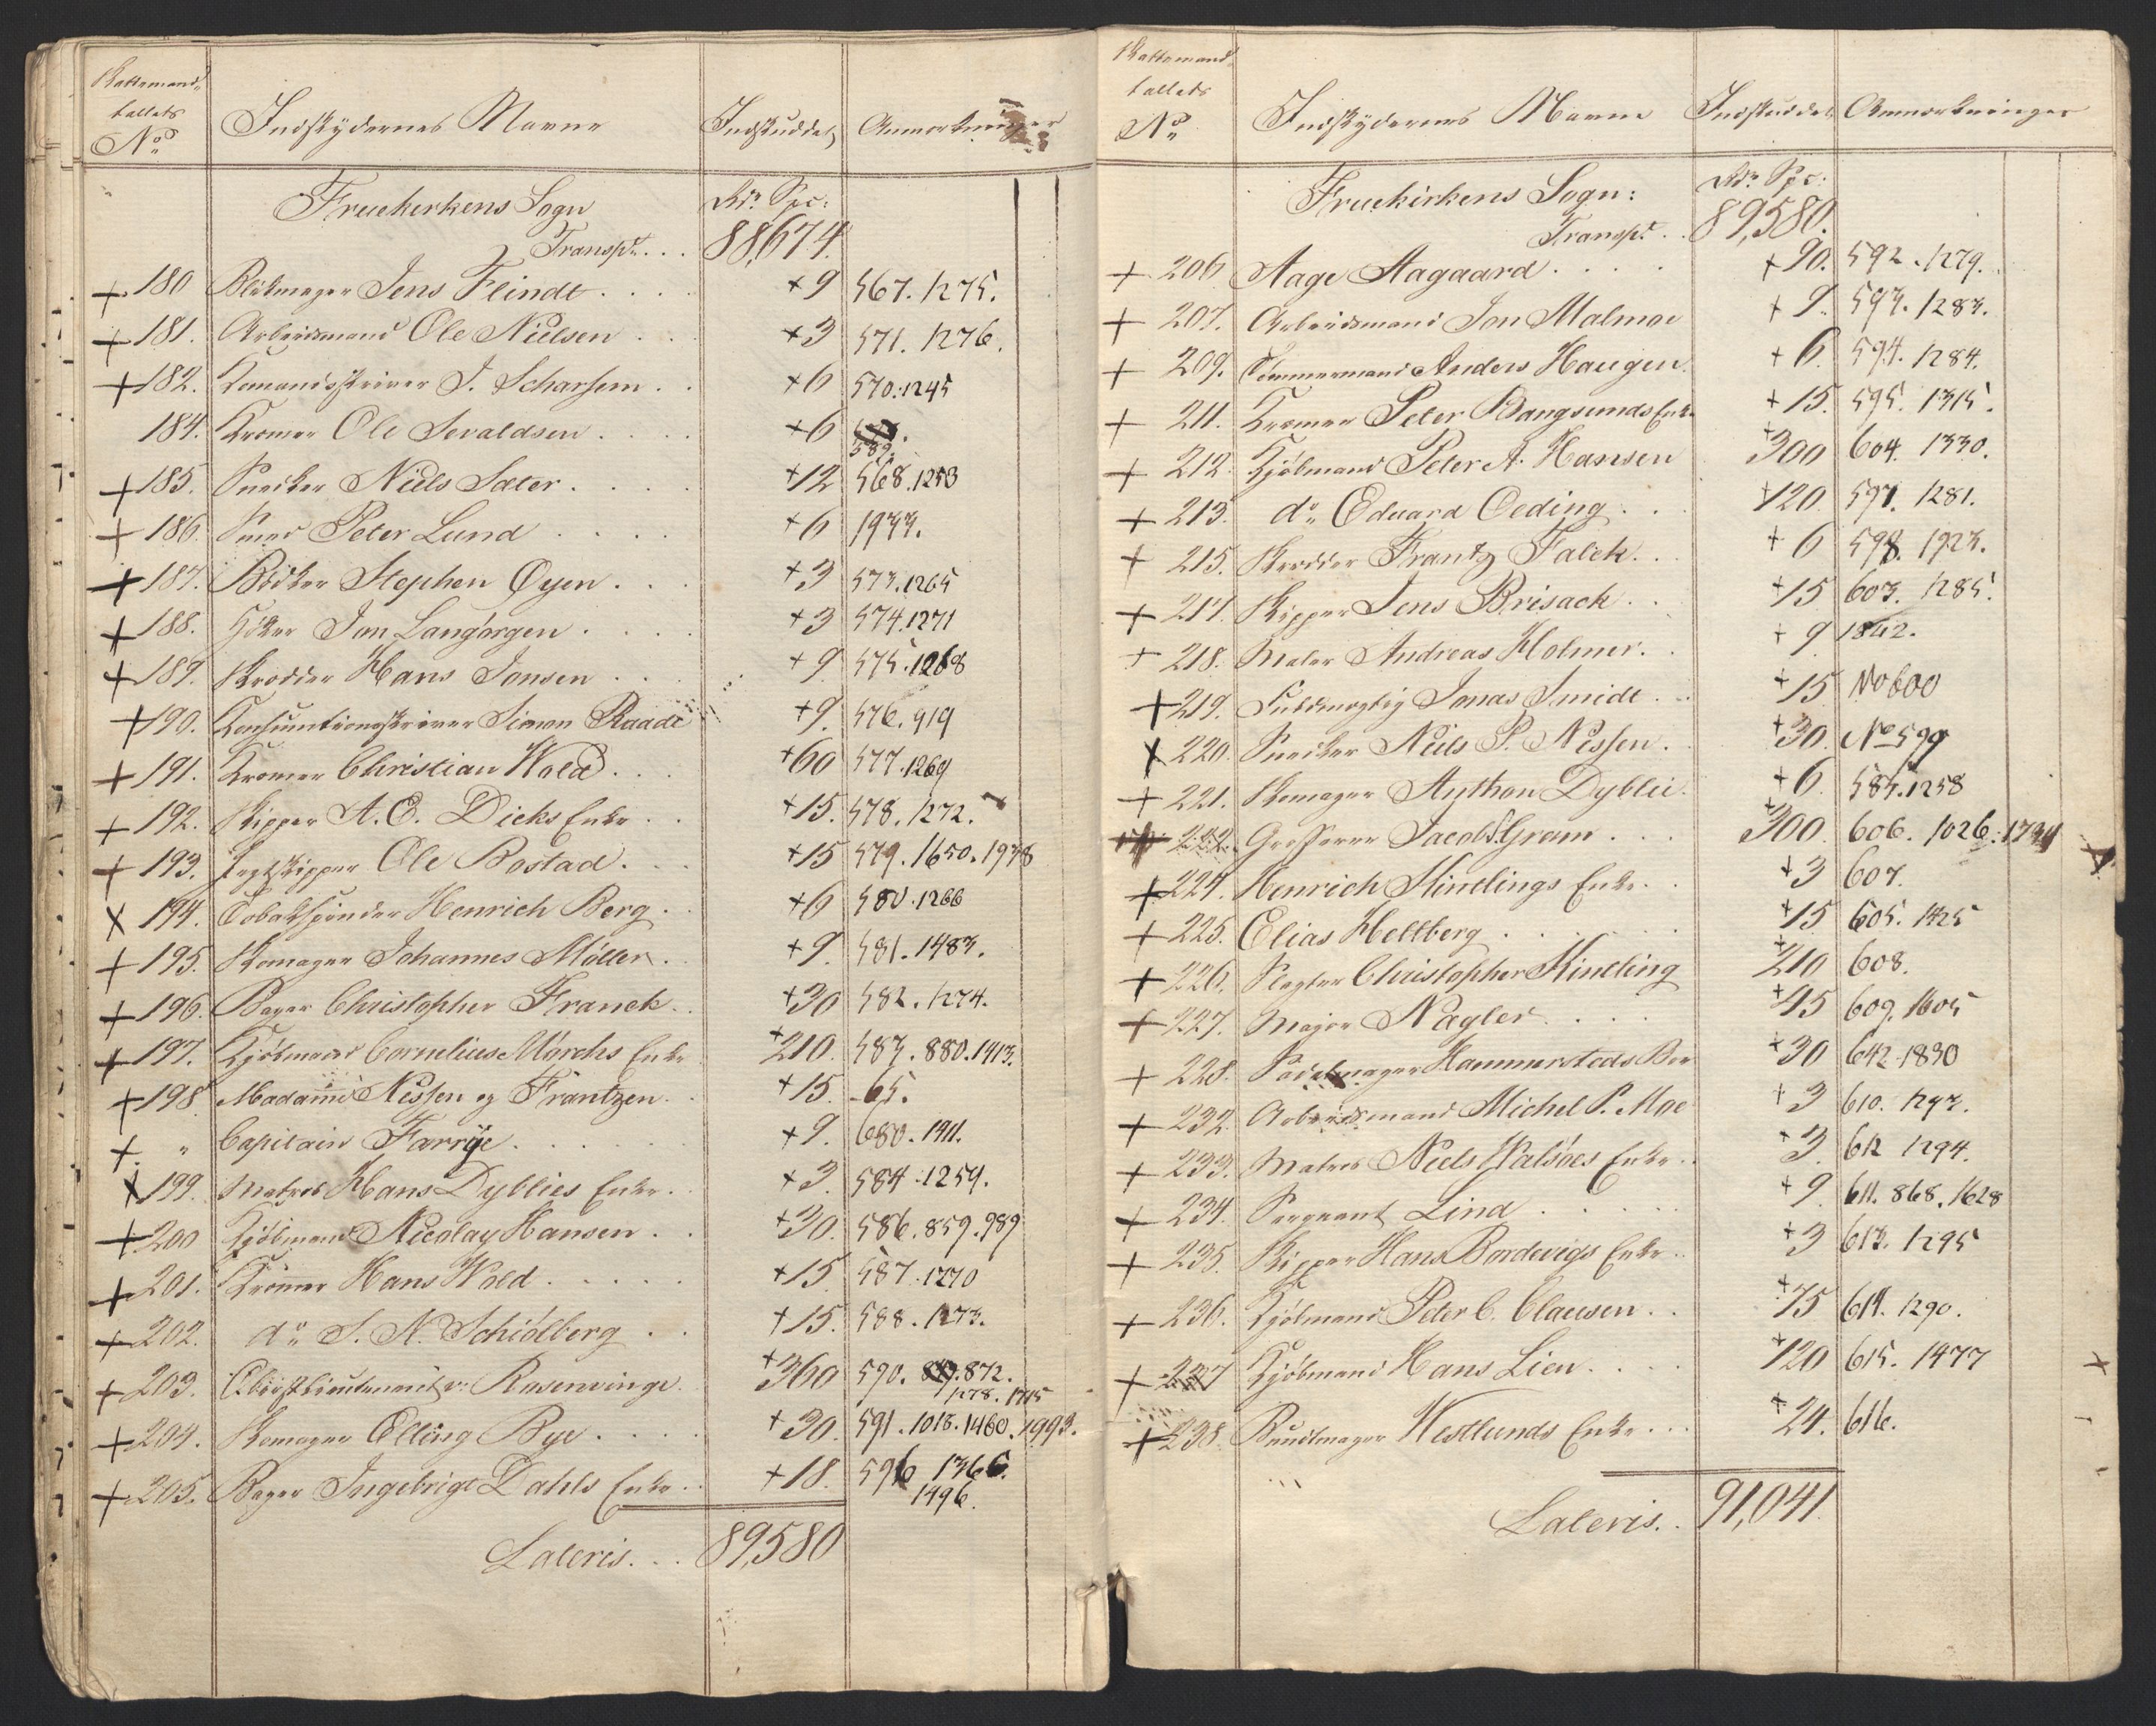 Skattemand-
tallets
No
Indskydernes Navne
Indskuddet
Anmærkninger
Fruekirkens Sogn
Rdr. Spc:
Transpt... 88,674
+ 180 Blokmager Jens Flindt.... +9 567. 1275.
+ 181. Arbeidsmand Ole Nielsen... +3 571. 1276.
+ 182. J. Scharhem.. +6 570. 1245
184. Kræmer Ole Sevaldsen.... +6
589.
+ 185. Snedker Niels Sæter.... +12 568. 1253
+ 186. Smed Peter Lund.... +6 1933.
+ 187. Bödker Stephen Øyen... +3 573. 1265
+ 188. Höker Jon Langörgen.... +3 574. 1271
+ 189. Skrædder Hans Jonsen... +9 575. 1268
+ 190. Consumtionsskriver Simon Raade +9. 576. 919
+ 191. Kræmer Christian Wold... +60 577. 1269
+ 192. Skipper A. E. Dicks Enke.. +15. 578. 1272.
+ 193. Jagtskipper Ole Bostad... +15 579. 1650. 1938
x 194. Tobakspinder Henrich Berg.. +6 580. 1266
+ 195. Skomager Johannes Möller.. +9. 581. 1483.
+ 196. Bager Christopher Franck.. +30 582. 1274.
+ 197. Kjöbmand Cornelius Mörchs Enke +210. 583. 880. 1413.
+ 198. Madame Nissen og Frantzen.. +15. 65.
+ " Capitain Farrye...... +9. 680. 1911.
x 199. Matros Hans Dyblies Enke.. +3. 584. 1259.
+ 200 Kjöbmand Nicolay Hansen.. +30. 586. 859. 989
+ 201. Kræmer Hans Wold..... +15. 587. 1270
+ 202. do S. N. Schiölberg.. +15. 588. 1273.
+ 203. Oberstlieutenant v: Rosenvinge. +360 590. 872.
1278. 1715
+ 204. Skomager Elling Bye.... +30. 591. 1018. 1460. 1993.
+ 205. Bager Ingebrigt Dahls Enke.. +18. 596 1366.
1496.
Lateris... 89,580
Skattemand-
tallets
No
Indskydernes Navne
Indskuddet
Anmærkninger
Fruekirkens Sogn:
Rdr. Spc:
Transpt.. 89,580.
+ 206 Aage Aagaard.... +90. 592. 1279.
+ 207. Arbeidsmand Jon Malmoe +9. 593. 1283.
+ 209. Tömmermand Anders Haugen. +6. 594. 1284.
+ 211. Kræmer Peter Bangsunds Enke +15. 595. 1315.
+ 212. Kjöbmand Peter A. Hansen +300 604. 1330.
+ 213. do Eduard Oeding... +120. 597. 1281.
+ 215. Skrædder Frantz Falck... +6 598. 1923.
+ 217. Skipper Jens Brisach.. +15 603. 1285.
+ 218. Maler Andreas Holmer.. +9 1842.
+ 219. Fuldmægtig Jonas Smidt... +15 No 600
x 220. Snedker Niels P. Nissen. +30. No 599
+ 221. Skomager Anthon Dyblie. +6. 585. 1258
222. Grosserer Jacob S. Gram... +300 606. 1026. 1734
+ 224. Henrich Kintlings Enke.. +3 607.
+ 225. Elias Heltberg...... +15 605. 1425
+ 226. Slagter Christopher Kintling +210 608.
+ 227. Major Nagler.... +45 609. 1605
+ 228. Sadelmager Hammersteds Boe +30 642. 1830
+ 232. Arbeidsmand Michel P. Moe +3 610. 1293.
+ 233. Matros Niels Walsöes Enke.. +3. 612 1294.
+ 234. Sergeant Lind..... +9 611. 868. 1628
+ 235. Skipper Hans Bordevigs Enke.. +3 613. 1295
+ 236. Kjöbmand Peter C. Clausen.. +75 614. 1290.
+ 237 Kjöbmand Hans Lien.... +120 615. 1477
+ 238. Buntmager Westlunds Enke... +24. 616.
Lateris.. 91,041